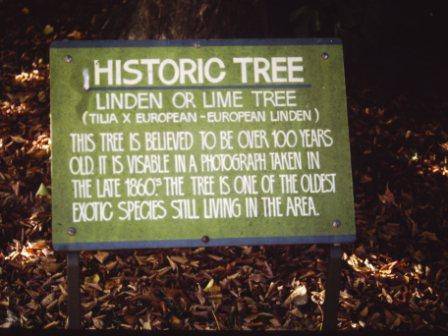 HISTORIC TREE
LINDEN OR LIME TREE
(TILIA X EUROPEAN - EUROPEAN LINDEN)
THIS TREE IS BELIEVED TO BE OVER 100 YEARS
OLD. IT IS VISABLE IN A PHOTOGRAPH TAKEN IN
THE LATE 1860s THE TREE IS ONE OF THE OLDEST
EXOTIC SPECIES STILL LIVING IN THE AREA.